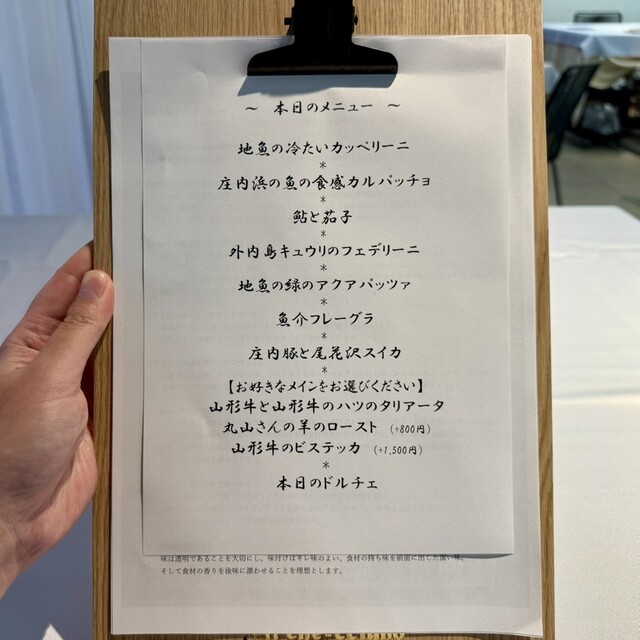 ～ 本日のメニュー ～
地魚の冷たいカッペリーニ
＊
庄内浜の魚の食感カルパッチョ
＊
鮎と茄子
＊
外内島キュウリのフェデリーニ
＊
地魚の緑のアクアパッツァ
＊
魚介フレーグラ
＊
庄内豚と尾花沢スイカ
＊
【お好きなメインをお選びください】
山形牛と山形牛のハツのタリアータ
丸山さんの羊のロースト (+800円)
山形牛のビステッカ (+1,500円)
＊
本日のドルチェ
味は透明であることを大切にし、味付けはキレ味のよい、食材の持ち味を前面に出した潔い味。
そして食材の香りを後味に漂わせることを理想とします。